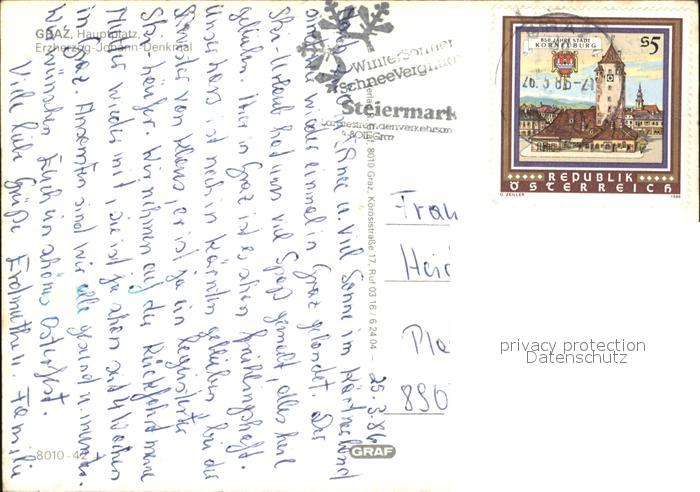 GRAZ, Hauptplatz,
Erzherzog-Johann-Denkmal
8010-42
25.3.86
viel Sonne im Kärntnerland
sind wir wieder einmal in Graz gelandet. Der
Ski-Urlaub hat uns viel Spaß gemacht, alles heil
geblieben. Hier in Graz ist es schon frühlingshaft.
Unser Hans ist noch in Kärnten geblieben bei der
Familie von Klaus, er ist ja ein begeisterter
Ski-Läufer. Wir nehmen auf der Rückfahrt meine
Mutter wieder mit, sie ist ja schon seit 4 Wochen
in Graz. Ansonsten sind wir alle gesund u. munter.
Wir wünschen Euch ein schönes Osterfest.
Viele liebe Grüße Erdmuthe u. Familie
8010 Graz, Körösistraße 17, Ruf 03 16 / 6 24 04
GRAF
WinterSonnen
SchneeVergnüg
Steiermark
Landesfremdenverkehrsam
A-8010 Graz
26.3.86-21
850 JAHRE STADT
KORNEUBURG
S5
REPUBLIK
ÖSTERREICH
O. ZEILLER
1986
Frau
Hei
Ple
890
privacy protection
Datenschutz